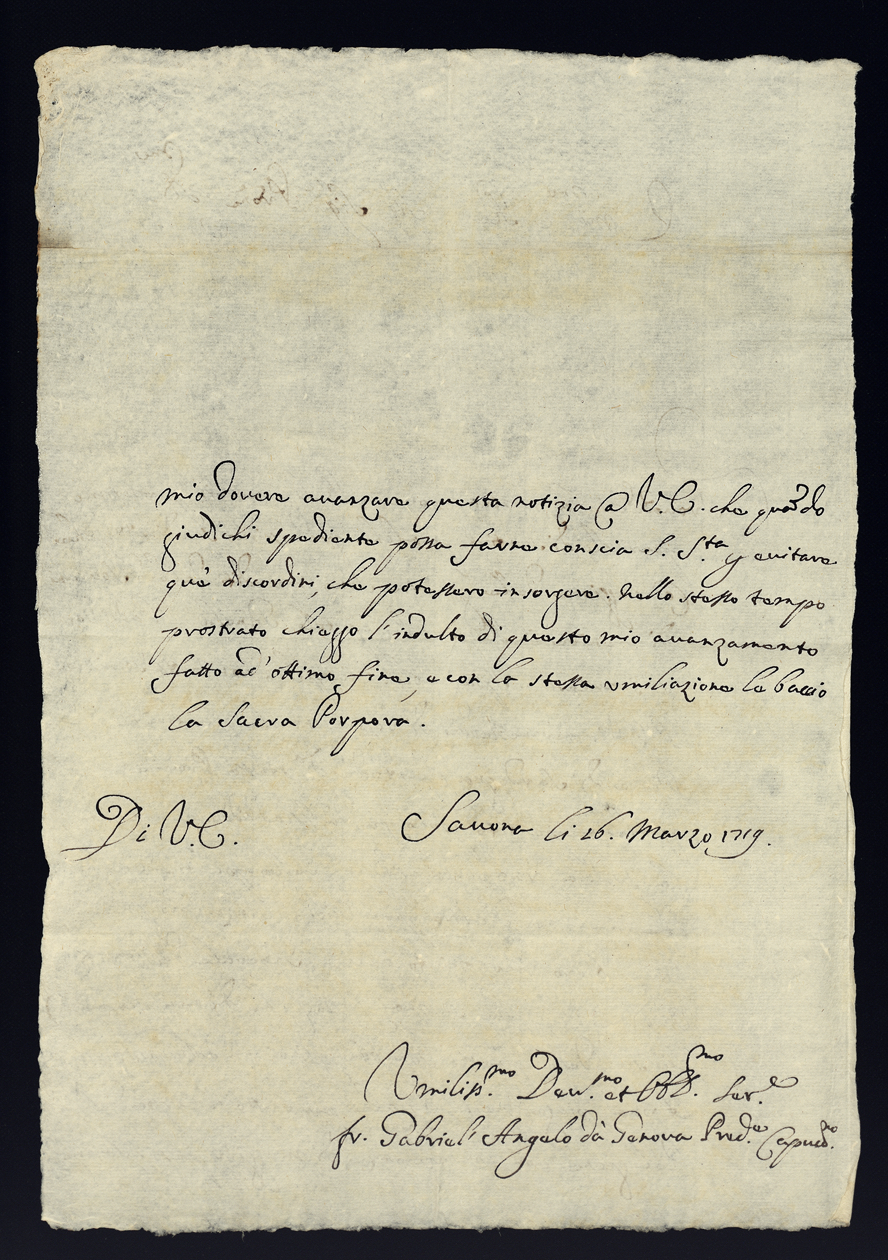 mio dovere avanzare questa notizia @ V. E. che qua͠do
giudichi spediente possa farne conscia S. S.ta p evitare
que' discordini, che potessero insorgere. Nello stesso tempo
prostrato chieggo l'indulto di questo mio avanzamento
fatto ad' ottimo fine, e con la stessa vmiliazione le baccio
la Sacra Porpora.
Di V. E. Savona li 26. Marzo 1719.
Vmiliss.mo Dev.mo et Obb.mo Ser.e
fr. Gabriel' Angelo dà Genova Pred.e Capucc.no